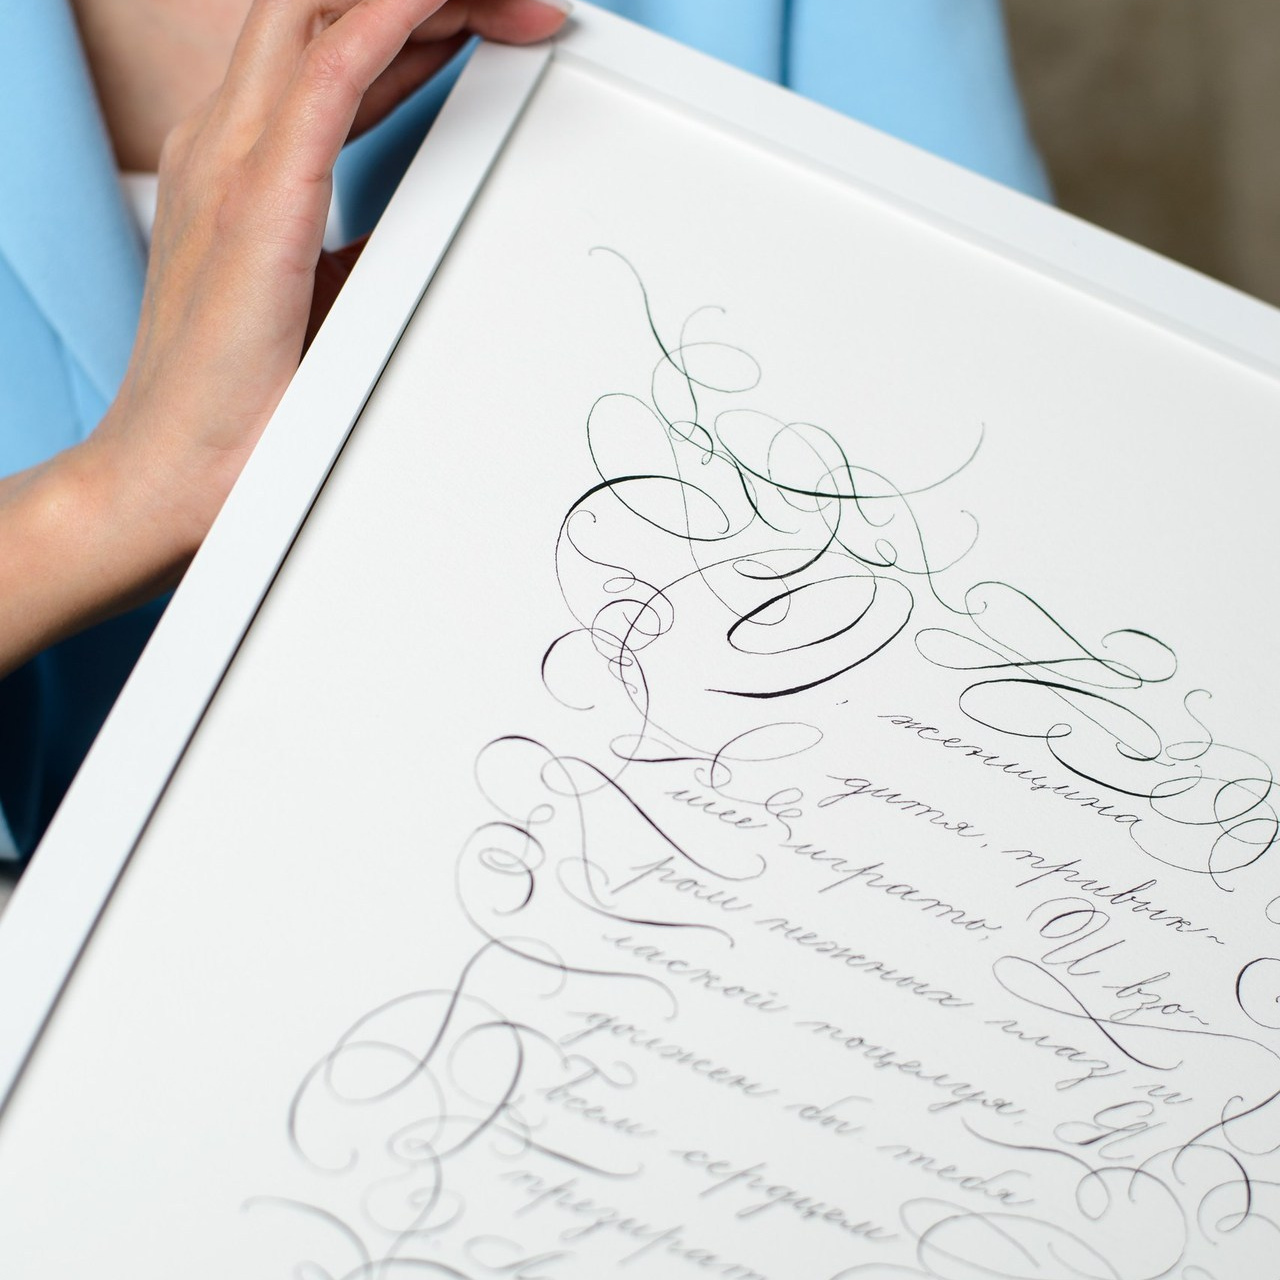 О, женщина
дитя, привык-
шее играть, И взо-
ром нежных глаз и
лаской поцелуя, Я
должен бы тебя
всем сердцем
презират